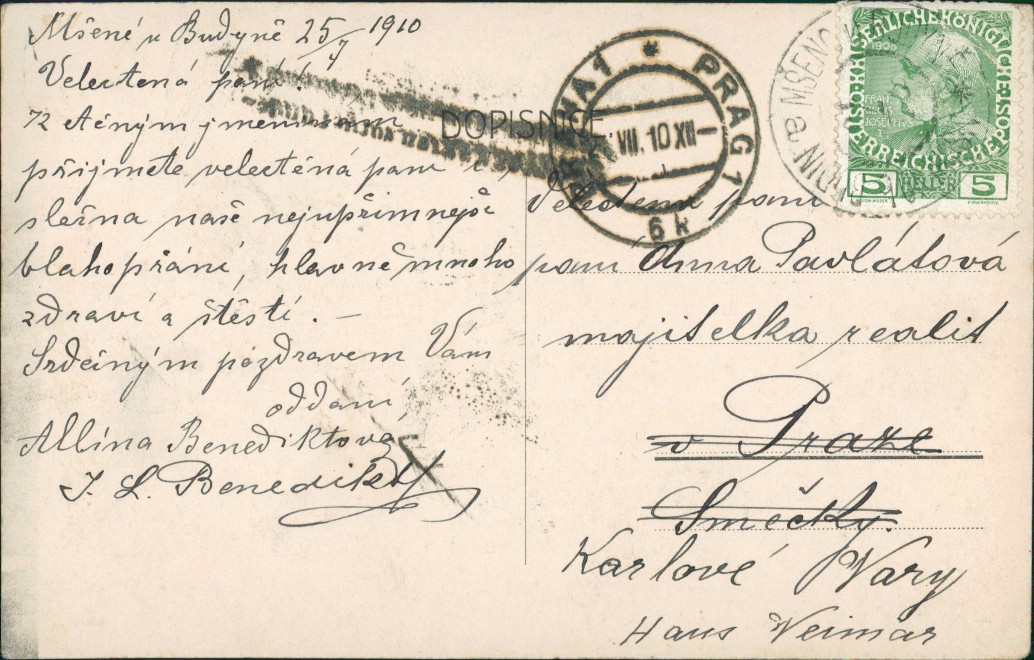 Mšené u Budyně 25/7 1910
Velectěná paní!
K ctěným jmeninám
přijměte velectěná paní i
slečna naše nejupřímnejší
blahopřání, hlavně mnoho
zdraví a štěstí. —
Srdečným pozdravem Vám
oddaní,
Allina Benediktova
J. L. Benedikt
DOPISNICE
PRAG 1
VII. 10 XII
6k
MŠENO
KAISERLICHEKÖNIGLICHE
ÖSTERREICHISCHEPOST
1908
5 HELLER 5
Velectěná paní
paní Anna Pavlátová
majitelka realit
v Praze
Smečky.
Karlové Vary
Haus Weimar